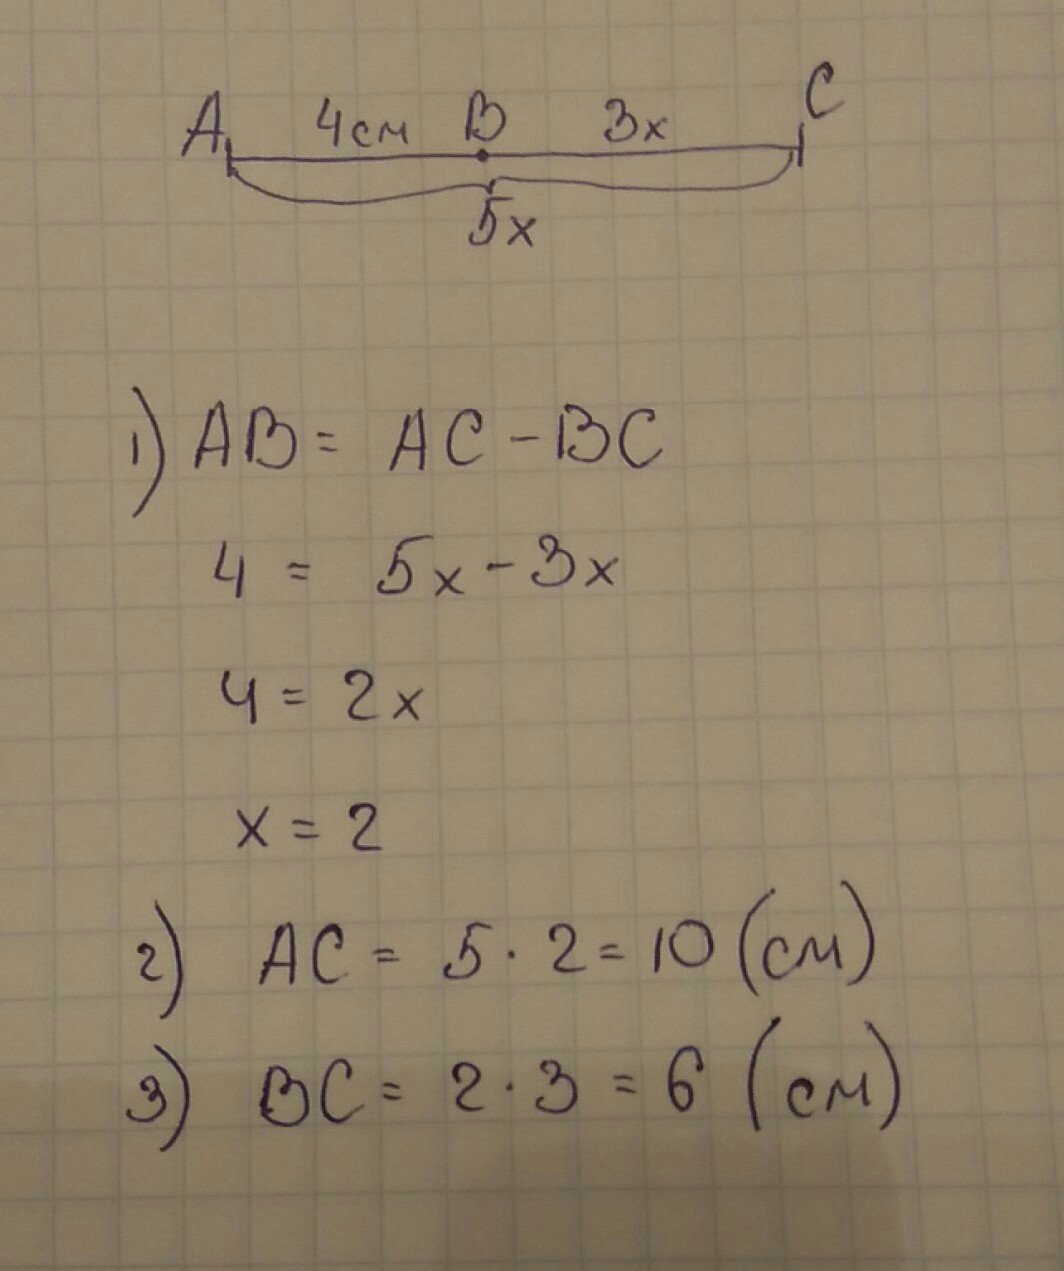 A 4см B 3x C
5x
1) AB = AC - BC
4 = 5x - 3x
4 = 2x
x = 2
2) AC = 5 · 2 = 10 (см)
3) BC = 2 · 3 = 6 (см)